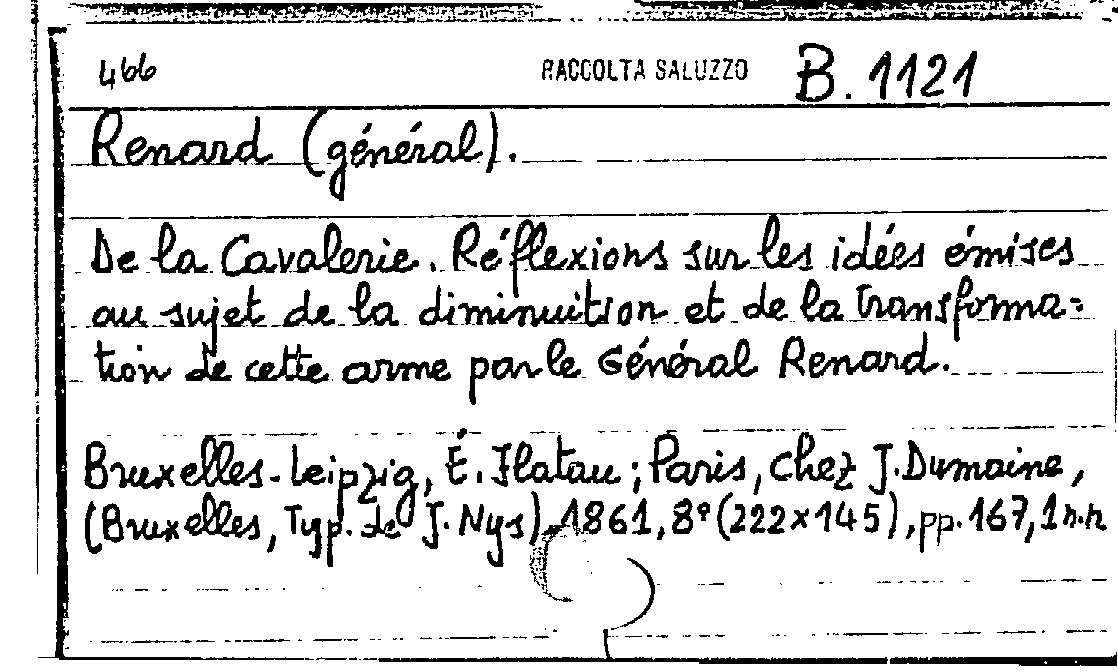 466 RACCOLTA SALUZZO B. 1121
Renard (général).
De la Cavalerie. Réflexions sur les idées émises
au sujet de la diminuition et de la transforma=
tion de cette arme par le Général Renard.
Bruxelles-Leipzig, É. Flatau; Paris, chez J. Dumaine,
(Bruxelles, Typ. de J. Nys), 1861, 8° (222x145), pp. 167, 1 n.n